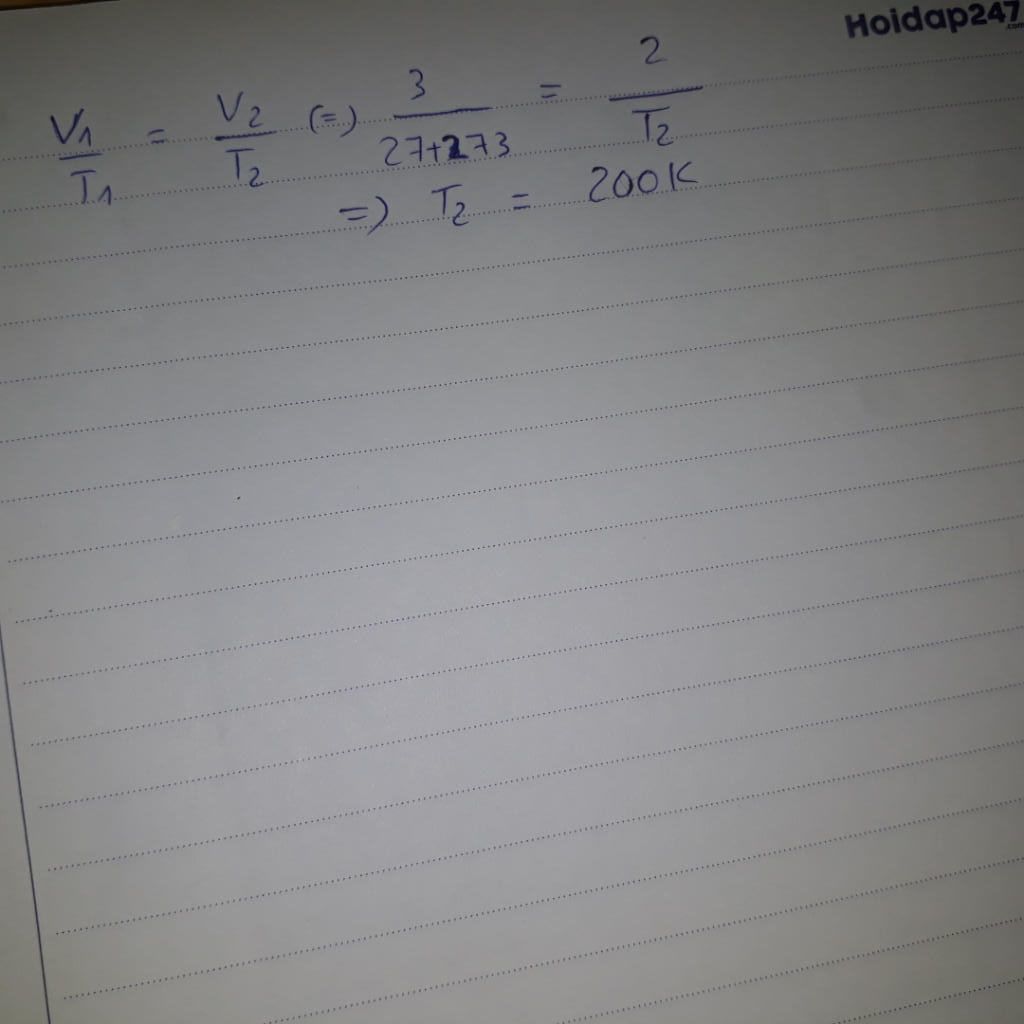 Hoidap247.com
V1/T1 = V2/T2 (=) 3/(27+273) = 2/T2
=) T2 = 200K